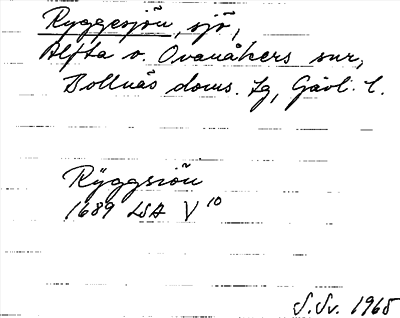 Ryggesjön, sjö,
Alfta o. Ovanåkers snr,
Bollnäs doms. lg, Gävl. l.
Rÿggsiön
1689 LSA V 10
S.Sv. 1965